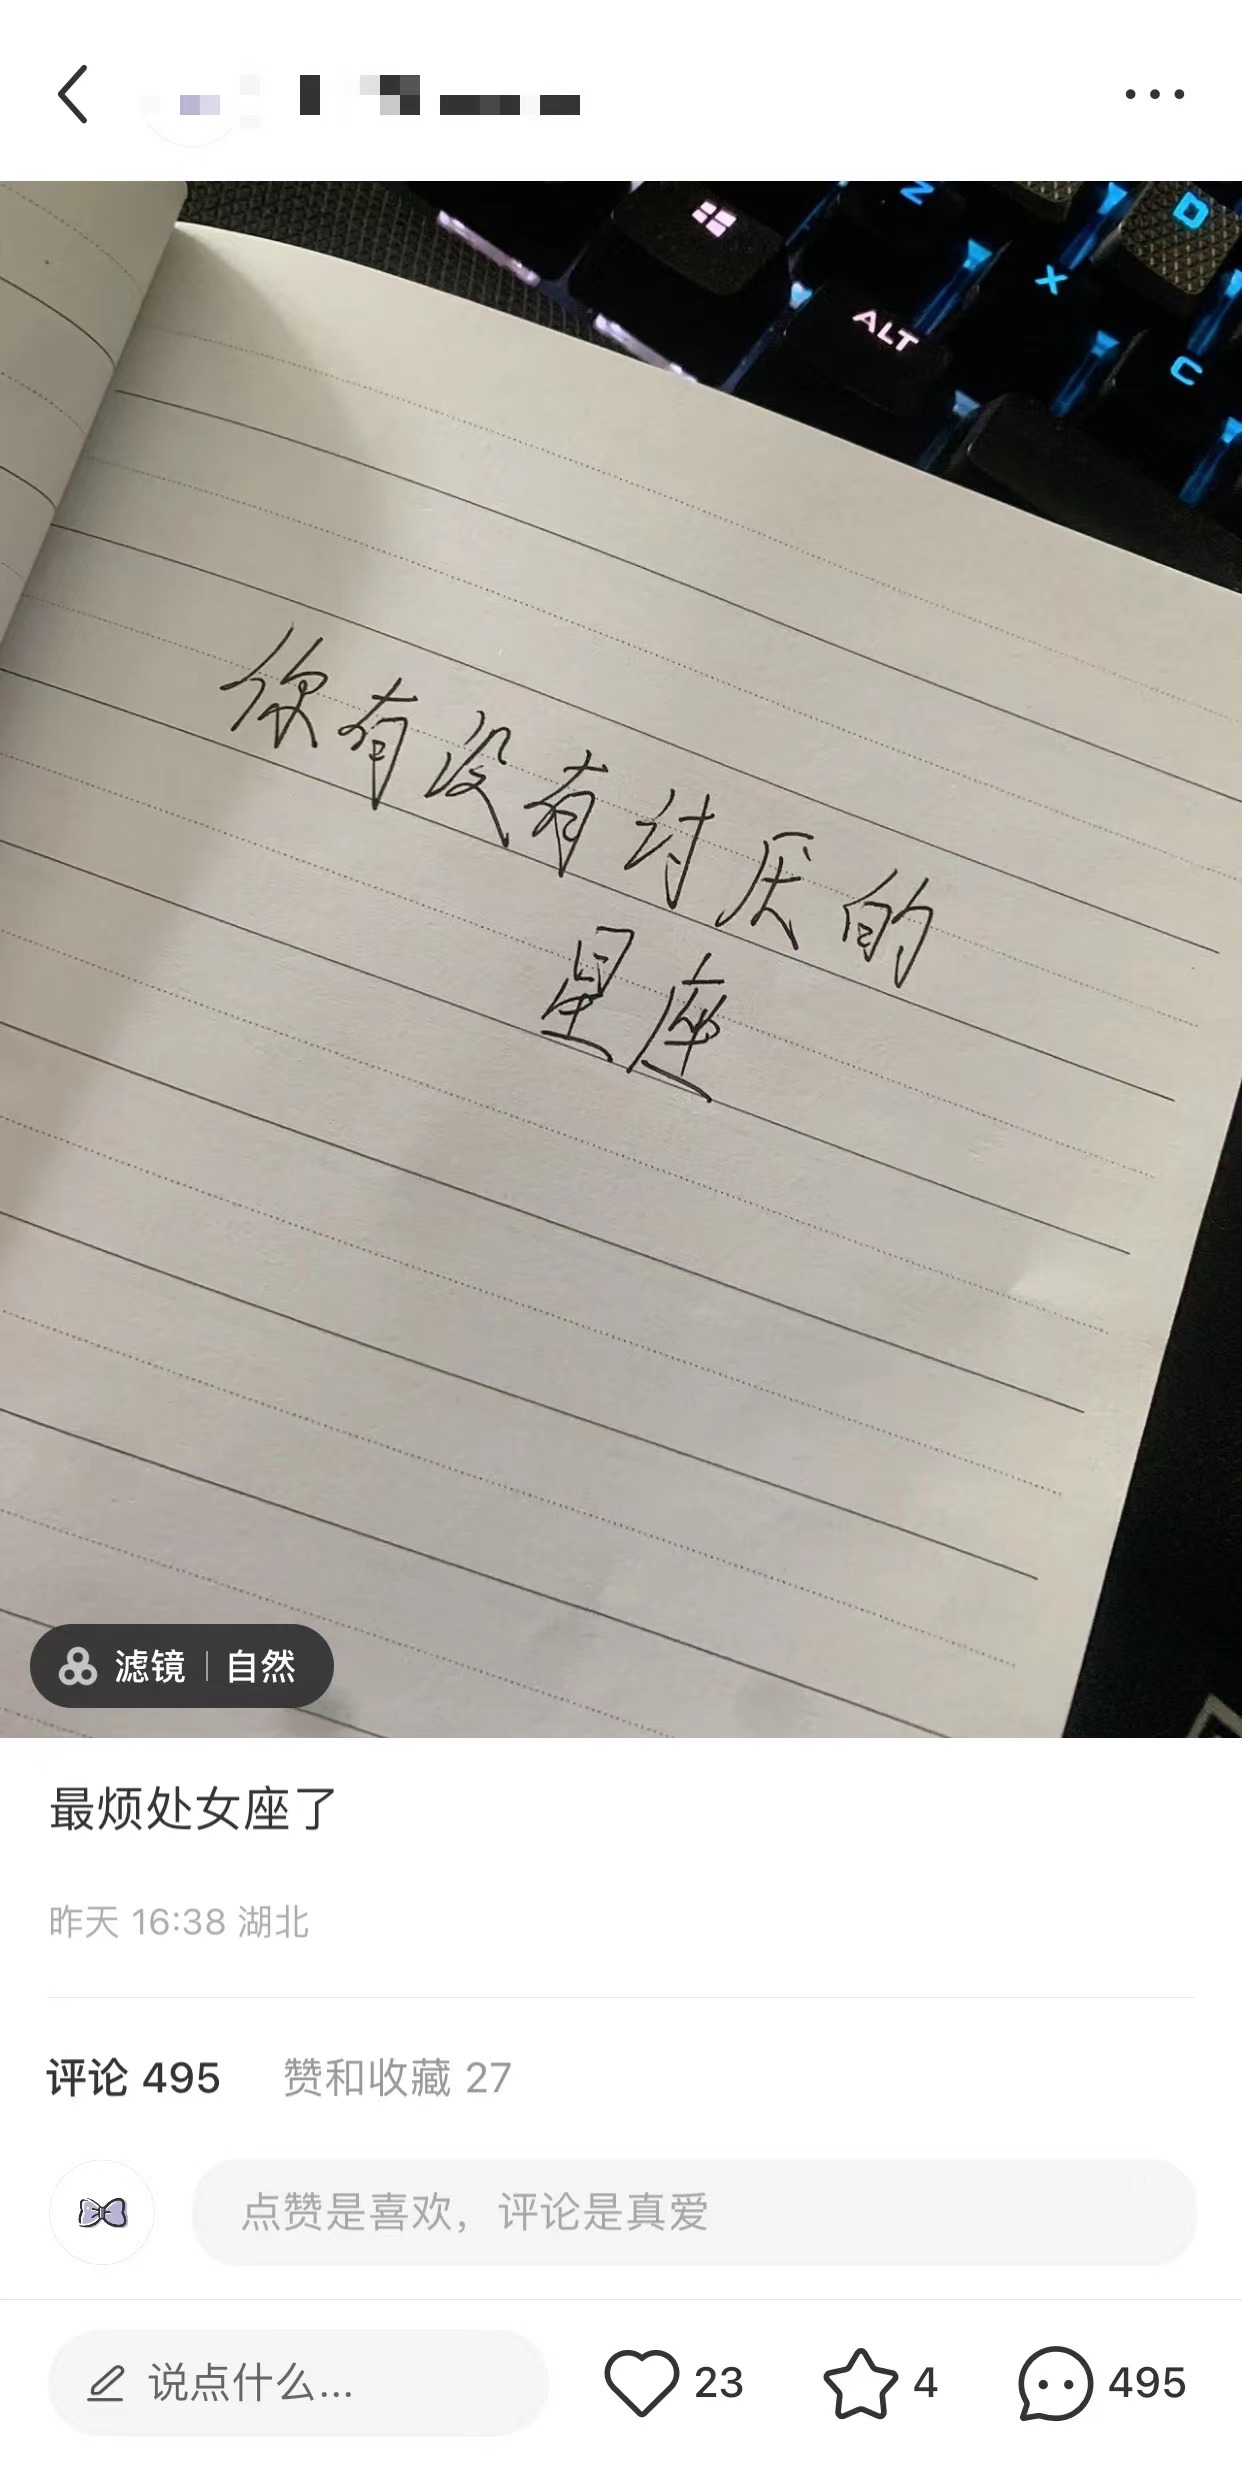 Z
D
X
ALT
C
你有没有讨厌的
星座
滤镜 | 自然
最烦处女座了
昨天 16:38 湖北
评论 495 赞和收藏 27
点赞是喜欢，评论是真爱
说点什么... 23 4 495